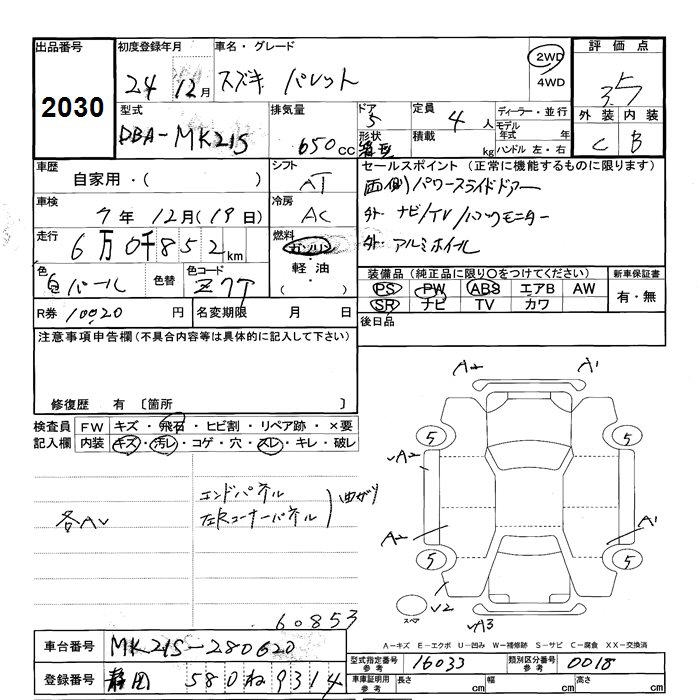 出品番号 初度登録年月 車名・グレード 評価点
2030 24 12月 スズキ パレット 2WD 4WD 3.5
型式 排気量 ドア 定員 ディーラー・並行 外装 内装
DBA-MK21S 650cc 5 4人 モデル年式 年 C B
形状 積載 kg ハンドル 左・右
車歴 シフト セールスポイント（正常に機能するものに限ります）
自家用・( ) AT 両側パワースライドドアー
車検 冷房 外 ナビ/TV/バックモニター
7年 12月(19日) AC 外 アルミホイール
走行 燃料
6万0千852km ガソリン・軽油・( )
色 色替 色コード 装備品（純正品に限り〇をつけてください） 新車保証書
白パール Z7T PS PW ABS エアB AW 有・無
SR ナビ TV カワ
R券 10020円 名変期限 月 日 後日品
注意事項申告欄（不具合内容等は具体的に記入して下さい）
修復歴 有 〔箇所 〕
検査員 FW キズ・飛石・ヒビ割・リペア跡・×要
記入欄 内装 キズ・汚レ・コゲ・穴・スレ・キレ・破レ
A2 A1
5 5
A2
エンドパネル
左右コーナーパネル 曲がり
各AV
A2 A1
5 5
V2
スペア A3
60853
A－キズ E－エクボ U－凹み W－補修跡 S－サビ C－腐食 XX－交換済
車台番号 MK21S-280620
型式指定番号 参考 16033 類別区分番号 参考 0018
登録番号 静岡 580 ね 9314
車庫証明用 参考 長さ cm 幅 cm 高さ cm